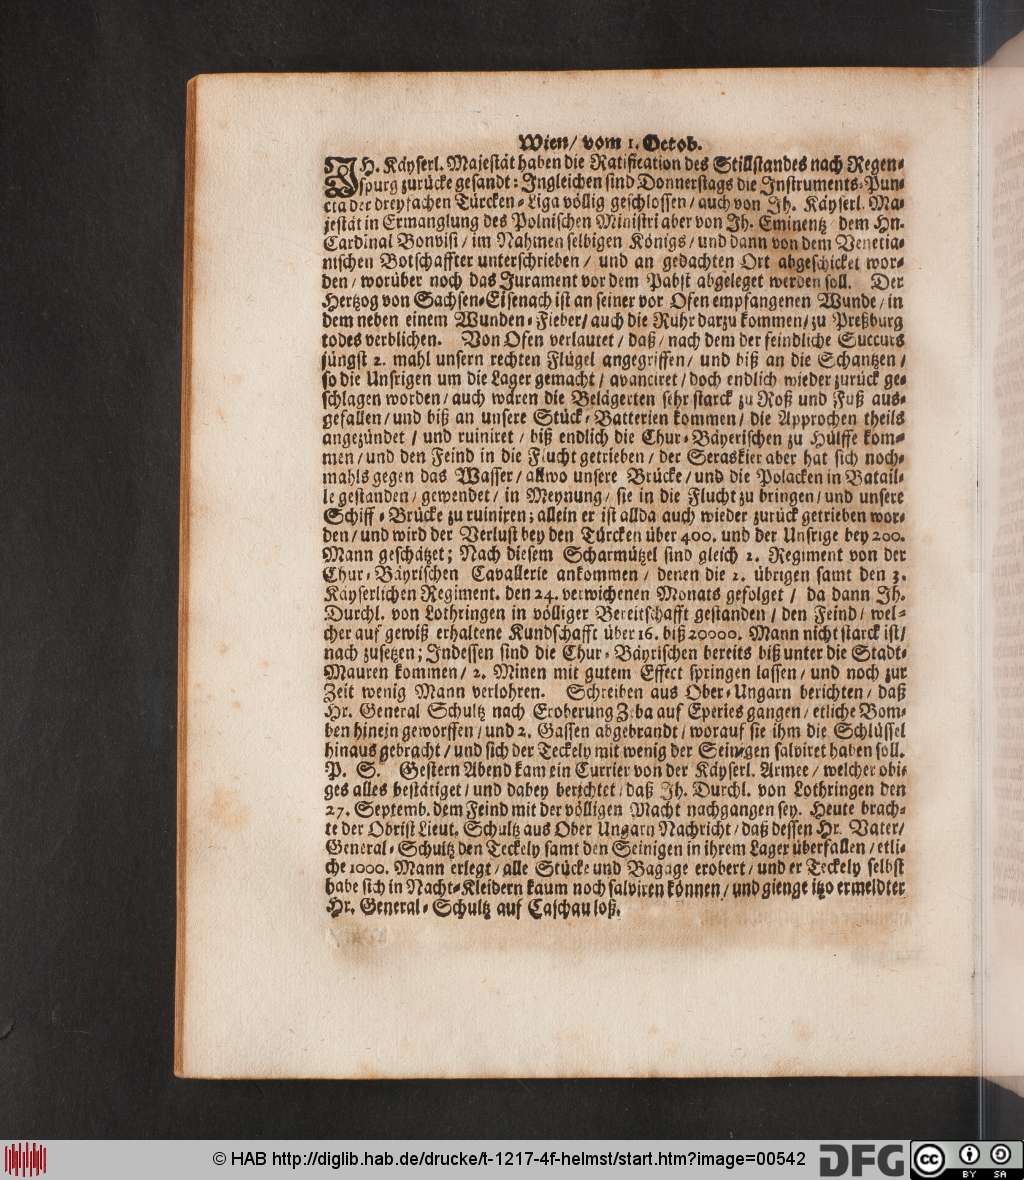 Wien/ vom 1. Octob.
IH. Käyserl. Majestät haben die Ratification des Stillstandes nach Regen-
spurg zurücke gesandt: Ingleichen sind Donnerstags die Instruments-Pun-
cta der dreyfachen Türcken-Liga völlig geschlossen/ auch von Ih. Käyserl. Ma-
jestät in Ermanglung des Polnischen Ministri aber von Ih. Eminentz dem Hn.
Cardinal Bonvisi/ im Nahmen selbigen Königs/ und dann von dem Venetia-
nischen Botschaffter unterschrieben/ und an gedachten Ort abgeschicket wor-
den/ worüber noch das Jurament vor dem Pabst abgeleget werden soll. Der
Hertzog von Sachsen-Eisenach ist an seiner vor Ofen empfangenen Wunde/ in
dem neben einem Wunden-Fieber/ auch die Ruhr darzu kommen/ zu Preßburg
todes verblichen. Von Ofen verlautet/ daß/ nach dem der feindliche Succurs
jüngst 2. mahl unsern rechten Flügel angegriffen/ und biß an die Schantzen/
so die Unsrigen um die Lager gemacht/ avanciret/ doch endlich wieder zurück ge-
schlagen worden/ auch wären die Belägerten sehr starck zu Roß und Fuß aus-
gefallen/ und biß an unsere Stück-Batterien kommen/ die Approchen theils
angezündet/ und ruiniret/ biß endlich die Chur-Bäyerischen zu Hülffe kom-
men/ und den Feind in die Flucht getrieben/ der Seraskier aber hat sich noch-
mahls gegen das Wasser/ allwo unsere Brücke/ und die Polacken in Batail-
le gestanden/ gewendet/ in Meynung/ sie in die Flucht zu bringen/ und unsere
Schiff-Brücke zu ruiniren; allein er ist allda auch wieder zurück getrieben wor-
den/ und wird der Verlust bey den Türcken über 400. und der Unsrige bey 200.
Mann geschätzet; Nach diesem Scharmützel sind gleich 2. Regiment von der
Chur-Bäyrischen Cavallerie ankommen/ denen die 2. übrigen samt den 3.
Käyserlichen Regiment. den 24. verwichenen Monats gefolget/ da dann Ih.
Durchl. von Lothringen in völliger Bereitschafft gestanden/ den Feind/ wel-
cher auf gewiß erhaltene Kundschafft über 16. biß 20000. Mann nicht starck ist/
nach zusetzen; Indessen sind die Chur-Bäyrischen bereits biß unter die Stadt-
Mauren kommen/ 2. Minen mit gutem Effect springen lassen/ und noch zur
Zeit wenig Mann verlohren. Schreiben aus Ober-Ungarn berichten/ daß
Hr. General Schultz nach Eroberung Zeba auf Eperies gangen/ etliche Bom-
ben hinein geworffen/ und 2. Gassen abgebrandt/ worauf sie ihm die Schlüssel
hinaus gebracht/ und sich der Teckely mit wenig der Seinigen salviret haben soll.
P. S. Gestern Abend kam ein Currier von der Käyserl. Armee/ welcher obi-
ges alles bestätiget/ und dabey berichtet/ daß Ih. Durchl. von Lothringen den
27. Septemb. dem Feind mit der völligen Macht nachgangen sey. Heute brach-
te der Obrist Lieut. Schultz aus Ober Ungarn Nachricht/ daß dessen Hr. Vater/
General-Schultz den Teckely samt den Seinigen in ihrem Lager überfallen/ etli-
che 1000. Mann erlegt/ alle Stücke und Bagage erobert/ und er Teckely selbst
habe sich in Nacht-Kleidern kaum noch salviren können/ und gienge itzo ermeldter
Hr. General-Schultz auf Caschau loß.
© HAB http://diglib.hab.de/drucke/t-1217-4f-helmst/start.htm?image=00542
DFG
cc
BY SA